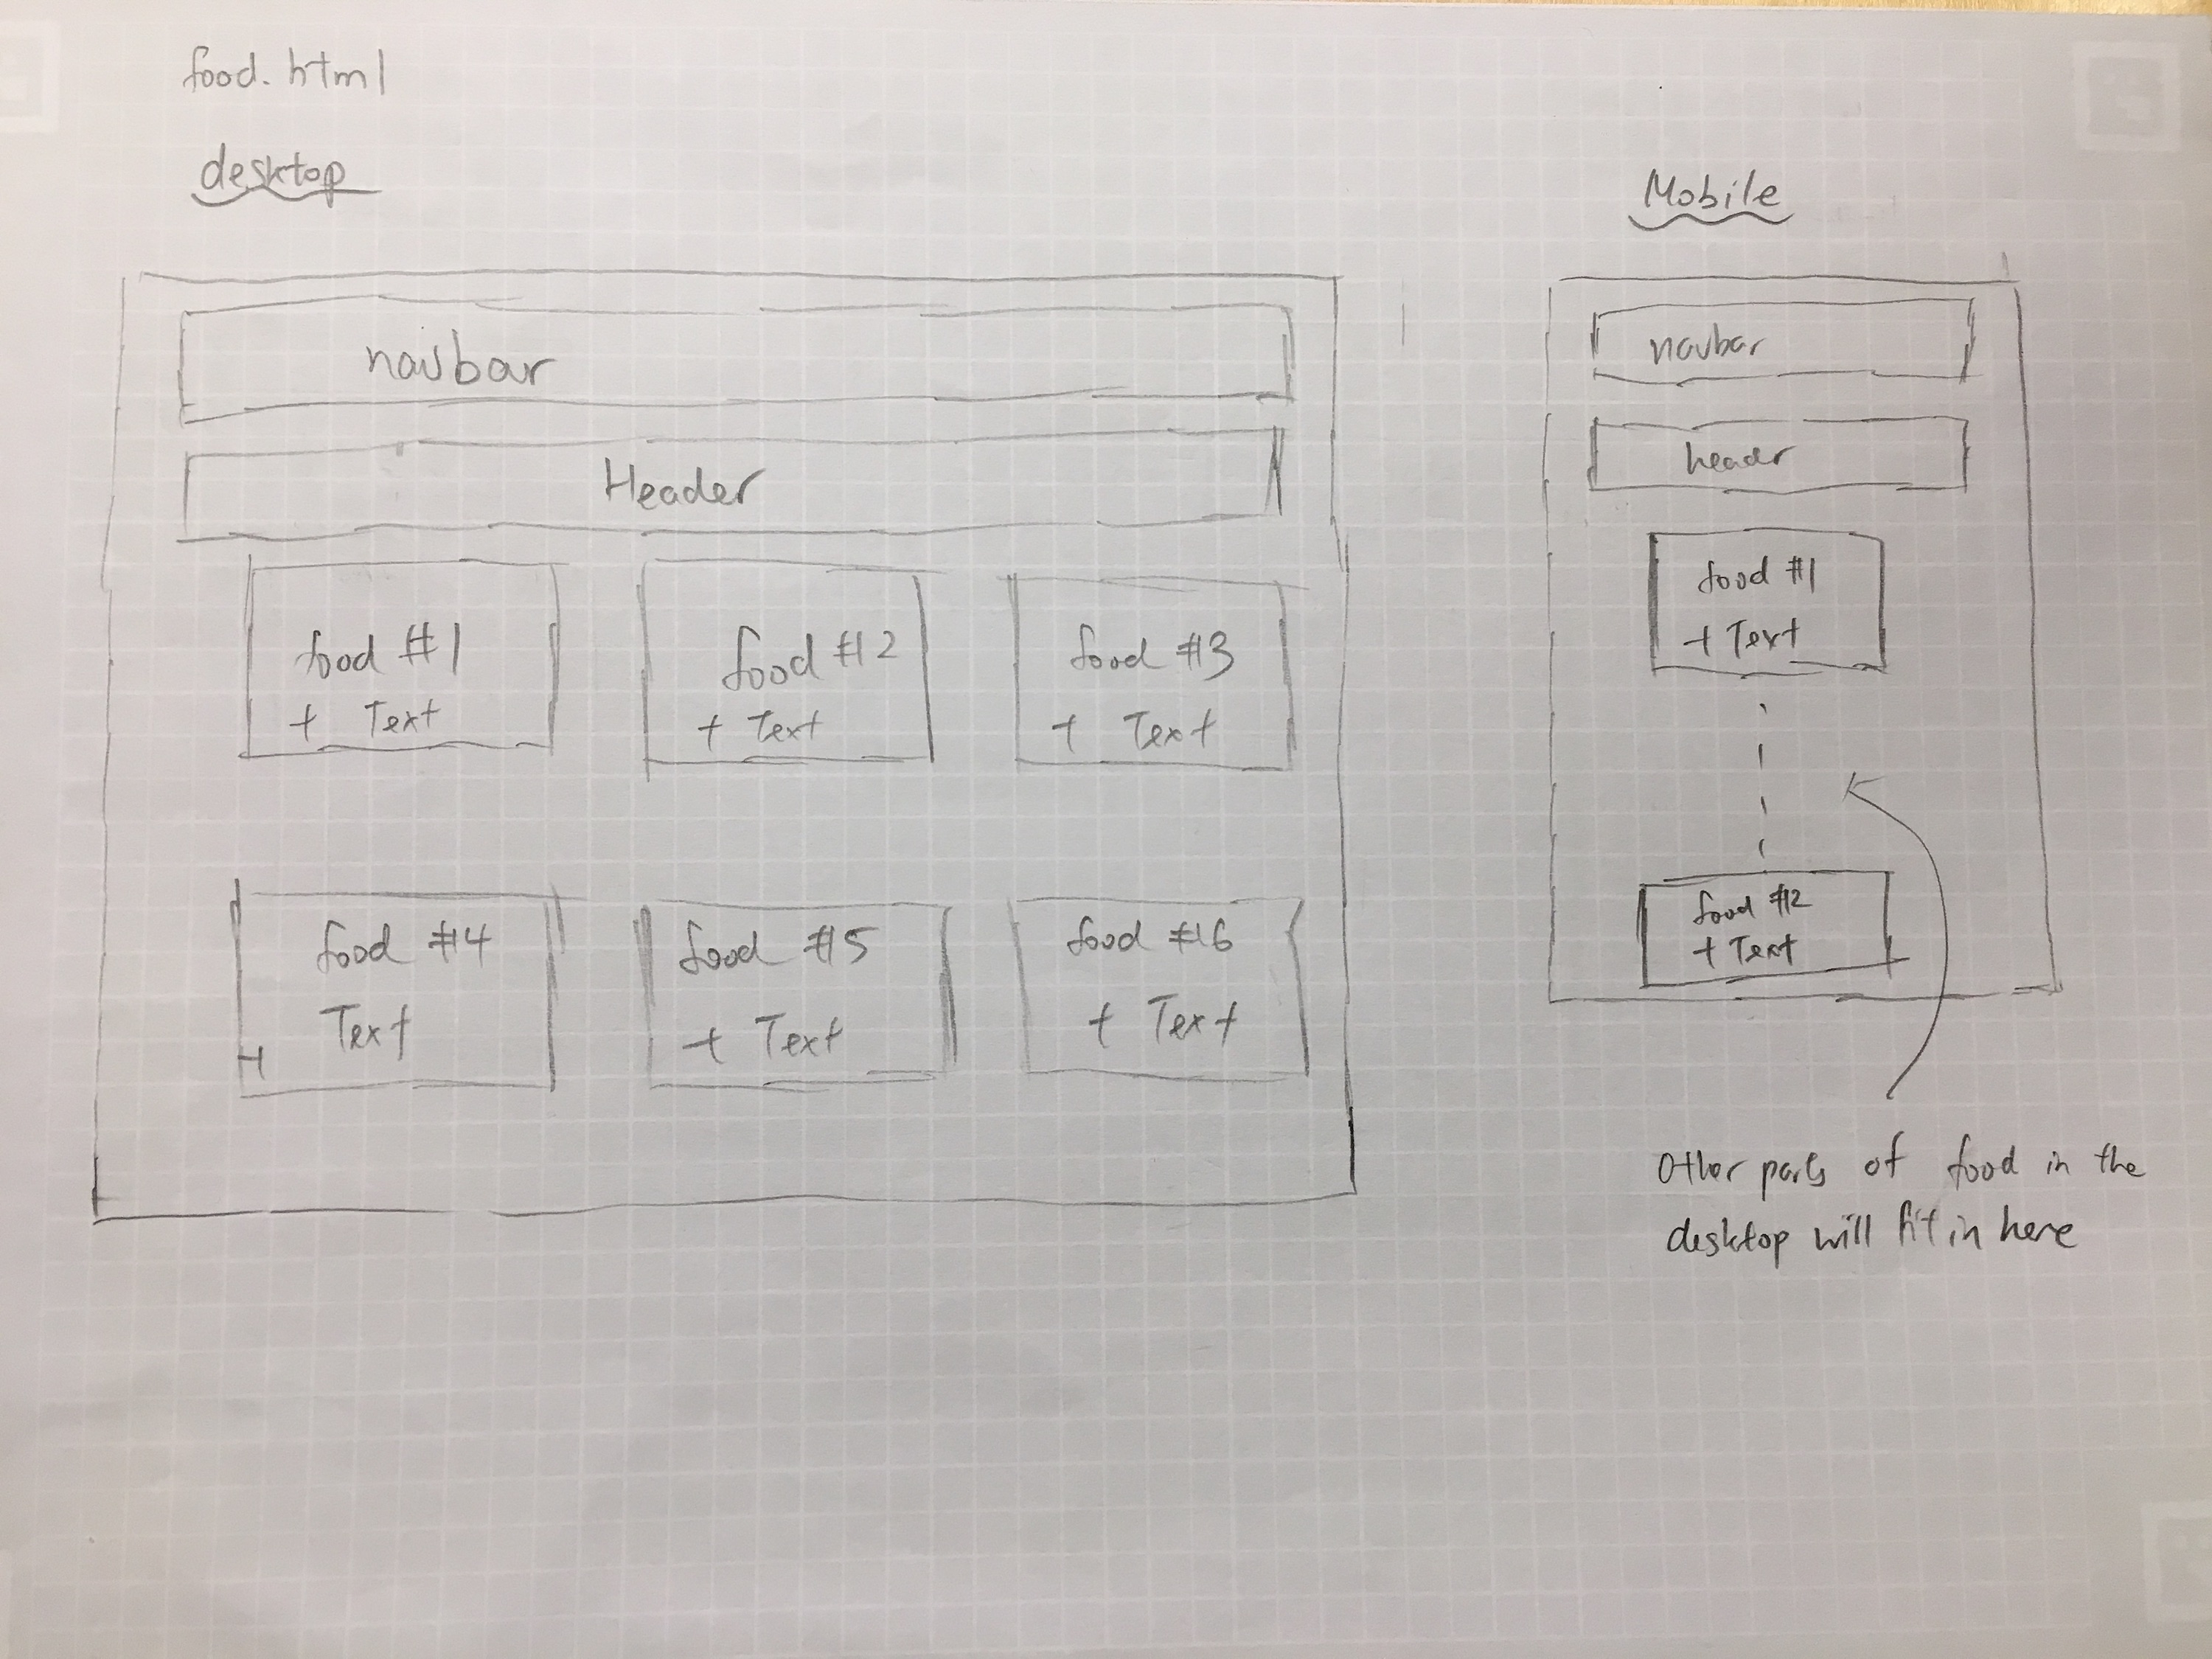 food.html
desktop
navbar
Header
food #1
+ Text
food #2
+ Text
food #3
+ Text
food #4
+ Text
food #5
+ Text
food #6
+ Text
Mobile
navbar
header
food #1
+ Text
food #2
+ Text
Other parts of food in the
desktop will fit in here